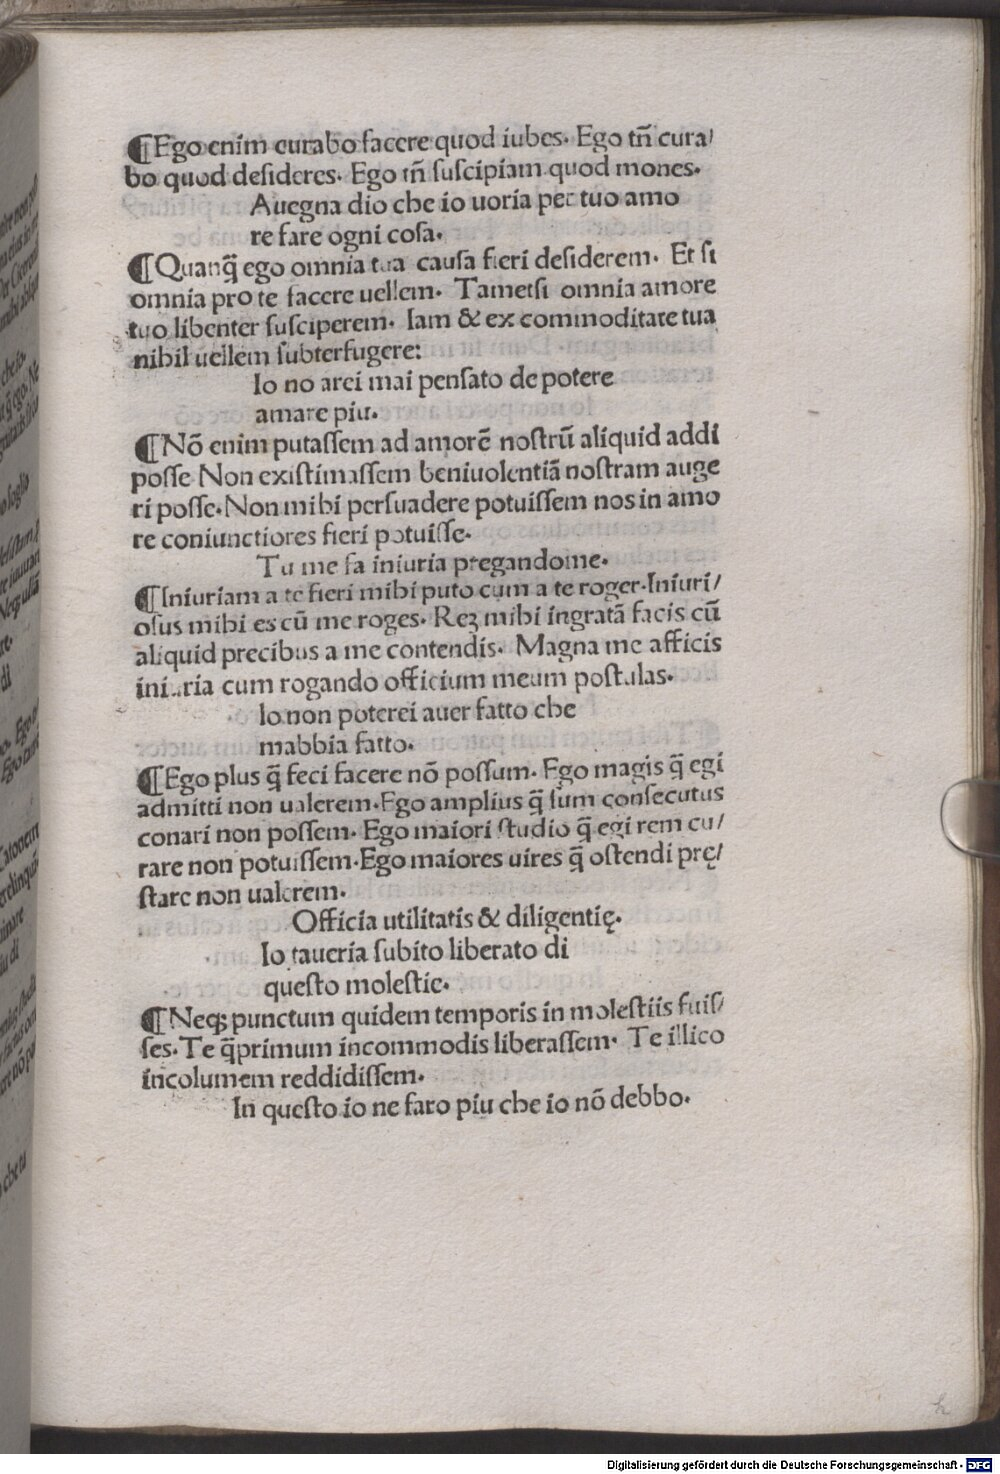 ¶Ego enim curabo facere quod iubes. Ego tñ cura/
bo quod desideres. Ego tñ suscipiam quod mones.
Auegna dio che io uoria per tuo amo
re fare ogni cosa.
¶Quanq̃ ego omnia tua causa fieri desiderem. Et si
omnia pro te facere uellem. Tametsi omnia amore
tuo libenter susciperem. Iam & ex commoditate tua
nihil uellem subterfugere:
Io no arei mai pensato de potere
amare piu.
¶Nõ enim putassem ad amorẽ nostrũ aliquid addi
posse Non existimassem beniuolentiã nostram auge
ri posse. Non mihi persuadere potuissem nos in amo
re coniunctiores fieri potuisse.
Tu me fa iniuria pregandome.
¶Iniuriam a te fieri mihi puto cum a te roger. Iniuri/
osus mihi es cũ me roges. Reꝫ mihi ingratã facis cũ
aliquid precibus a me contendis. Magna me afficis
iniuria cum rogando officium meum postulas.
Io non poterei auer fatto che
mabbia fatto.
¶Ego plus q̃ feci facere nõ possum. Ego magis q̃ egi
admitti non ualerem. Ego amplius q̃ sum consecutus
conari non possem. Ego maiori studio q̃ egi rem cu/
rare non potuissem. Ego maiores uires q̃ ostendi prę/
stare non ualerem.
Officia utilitatis & diligentię.
Io taueria subito liberato di
questo molestie.
¶Neqꝫ punctum quidem temporis in molestiis fuis/
ses. Te q̃primum incommodis liberassem. Te illico
incolumem reddidissem.
In questo io ne faro piu che io nõ debbo.
Digitalisierung gefördert durch die Deutsche Forschungsgemeinschaft - DFG